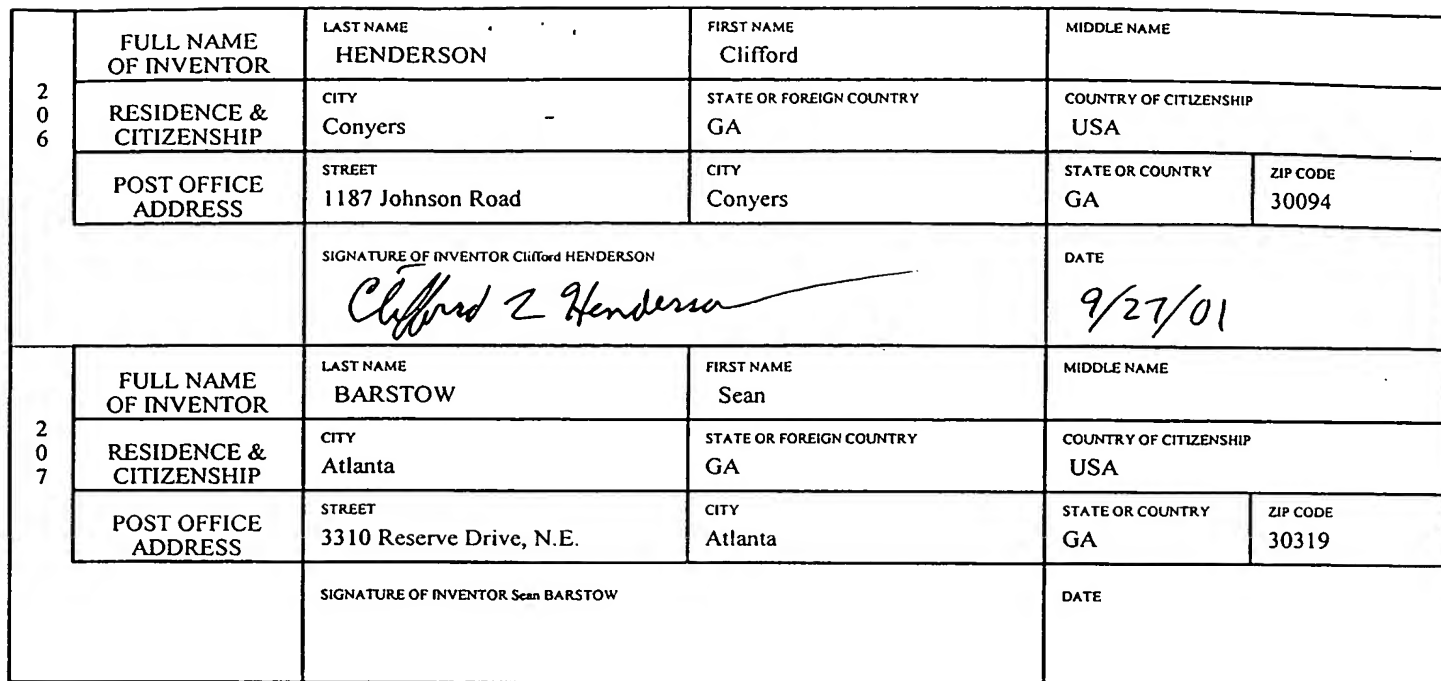 2
0
6
FULL NAME
OF INVENTOR
LAST NAME
HENDERSON
FIRST NAME
Clifford
MIDDLE NAME
RESIDENCE &
CITIZENSHIP
CITY
Conyers
STATE OR FOREIGN COUNTRY
GA
COUNTRY OF CITIZENSHIP
USA
POST OFFICE
ADDRESS
STREET
1187 Johnson Road
CITY
Conyers
STATE OR COUNTRY
GA
ZIP CODE
30094
SIGNATURE OF INVENTOR Clifford HENDERSON
Clifford L Henderson
DATE
9/27/01
2
0
7
FULL NAME
OF INVENTOR
LAST NAME
BARSTOW
FIRST NAME
Sean
MIDDLE NAME
RESIDENCE &
CITIZENSHIP
CITY
Atlanta
STATE OR FOREIGN COUNTRY
GA
COUNTRY OF CITIZENSHIP
USA
POST OFFICE
ADDRESS
STREET
3310 Reserve Drive, N.E.
CITY
Atlanta
STATE OR COUNTRY
GA
ZIP CODE
30319
SIGNATURE OF INVENTOR Sean BARSTOW
DATE